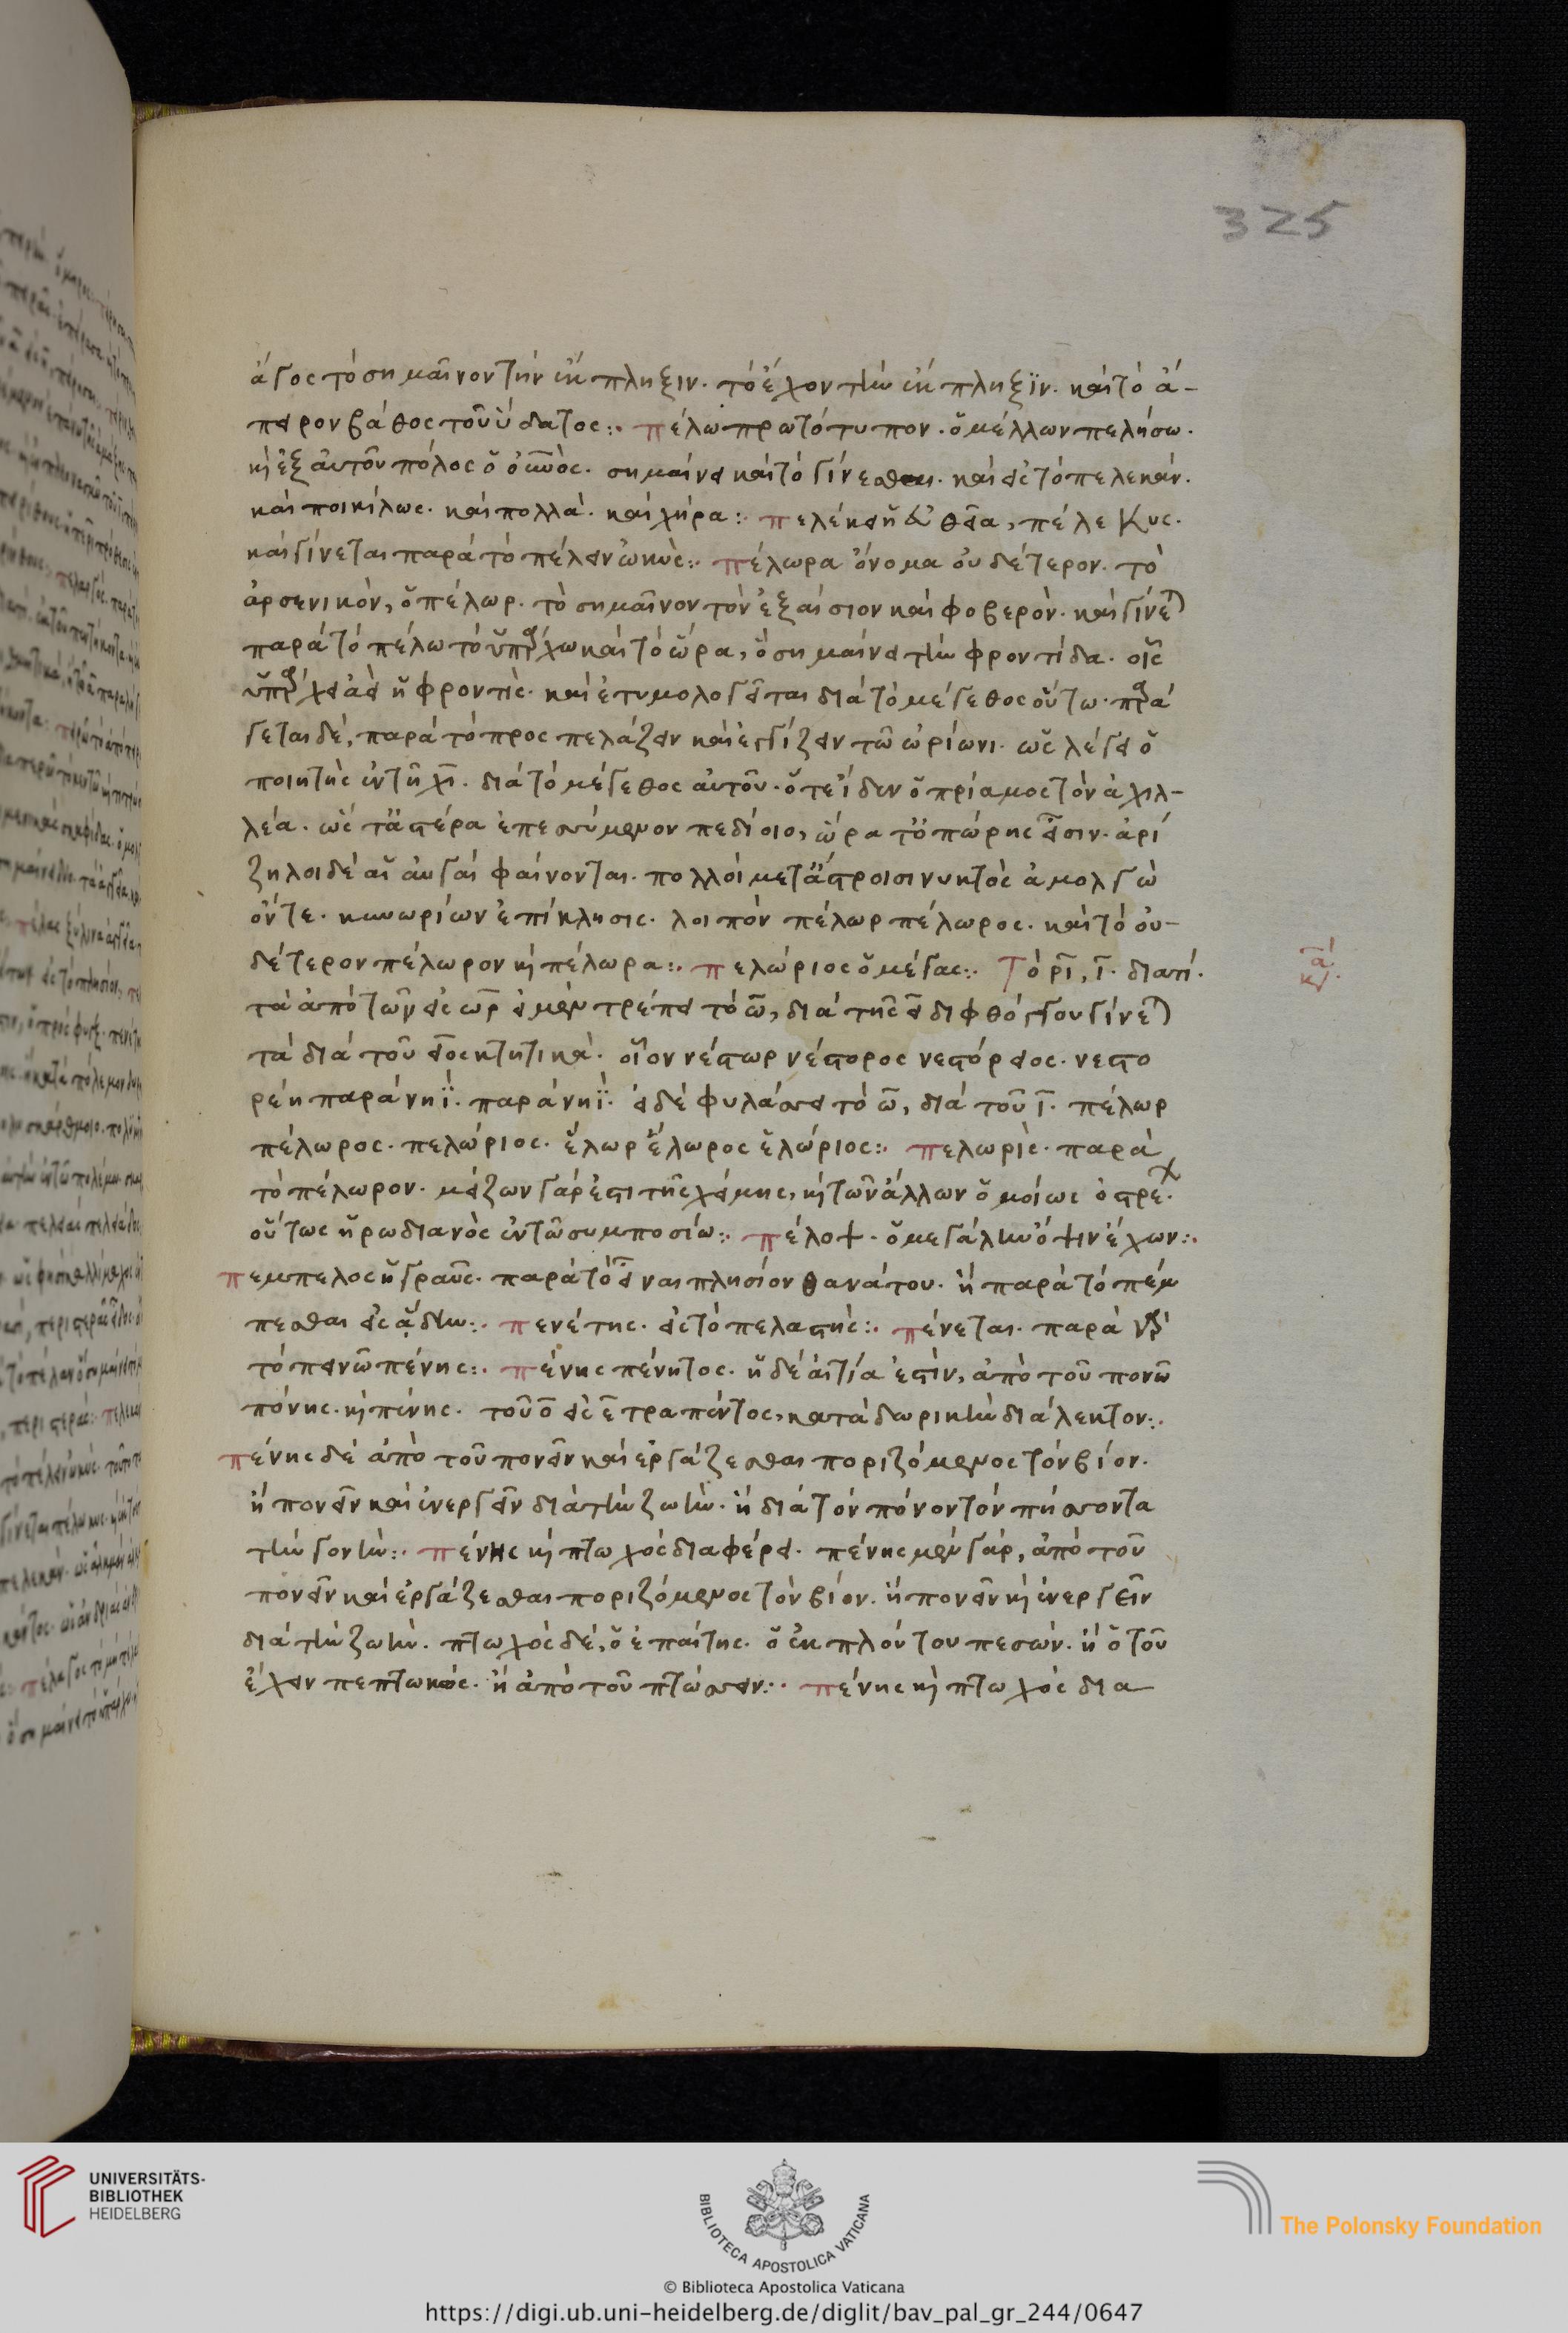 325
ἄγος τὸ σημαῖνον τὴν ἔκπληξιν. τὸ ἔχον τὴν ἔκπληξϊν. καὶ τὸ ἄ-
πειρον βάθος τοῦ ὕδατος:. πέλω πρωτότυπον. ὁ μέλλων πελήσω.
κ ἐξ αὐτοῦ πόλος ὁ οὐνός. σημαίνει καὶ τὸ γίνεσθαι. καὶ εἰς τὸ πελεκάν.
καὶ ποικίλως. καὶ πολλά. καὶ χήρα:. πελέκει πέλεκυς.
καὶ γίνεται παρὰ τὸ πέλειν ὠκύς:. πέλωρα ὄνομα οὐδέτερον. τὸ
ἀρσενικὸν, ὁ πέλωρ. τὸ σημαῖνον τὸν ἐξαίσιον καὶ φοβερόν. καὶ γίνε
παρὰ τὸ πέλω τὸ ὑπάρχω καὶ τὸ ὥρα, ὃ σημαίνει τὴν φροντίδα. οἷς
ὑπάρχει ἀεὶ ἡ φροντίς. καὶ ἐτυμολογεῖται διὰ τὸ μέγεθος οὕτω. παρά
γεται δέ, παρὰ τὸ προς πελάζειν καὶ ἐγγίζειν τῶ ὠρίωνι. ὡς λέγει ὁ
ποιητὴς ἐν τῆ χῖ. διὰ τὸ μέγεθος αὐτοῦ. ὅτε ἴδεν ὁ πρίαμος τὸν ἀχιλ-
λέα. ὡς τἀστέρα ἐπεσσύμενον πεδίοιο, ὥρα τ' ὀπώρης εἶσιν. ἀρί
ζηλοι δὲ αἱ αὐγαὶ φαίνονται. πολλοὶ μετ' ἄστροισι νυκτὸς ἀμολγῶ
ὅντε. κυνωρίων ἐπίκλησις. λοιπὸν πέλωρ πέλωρος. καὶ τὸ οὐ-
δέτερον πέλωρον κ πέλωρα:. πελώριος ὁ μέγας:. Τὸ ρῖ, ῖ. διατί.
τὰ ἀπὸ τῶν εἰς ωρ εἰ μὲν τρέπει τὸ ω, διὰ τῆς ει διφθόγγου γίνε
τὰ διὰ τοῦ ειος κτητικά. οἷον νέστωρ νέστορος νεστόρειος. νεστο
ρέη παρὰ νηΐ. παρὰ νηΐ. εἰ δὲ φυλάσσει τὸ ω, διὰ τοῦ ι. πέλωρ
πέλωρος. πελώριος. ἕλωρ ἕλωρος ἑλώριος:. πελωρίς. παρὰ
τὸ πέλωρον. μείζων γάρ ἐστι τῆς χείμης, κ τῶν ἄλλων ὁμοίως ὀστρέ.
οὕτως ἡρωδιανὸς ἐν τῶ συμποσίω:. πέλοψ. ὁ μεγάλην ὄψιν ἔχων:.
πεμπελος ἡ γραῦς. παρὰ τὸ εἶναι πλησίον θανάτου. ἢ παρὰ τὸ πέμ
πεσθαι εἰς ᾅδην:. πενέτης. εἰς τὸ πελαστής:. πένεται. παρὰ
τὸ πεινῶ πένης:. πένης πένητος. ἡ δὲ αἰτία ἐστὶν, ἀπὸ τοῦ πονῶ
πόνης. κ πένης. τοῦ ο εἰς ε τραπέντος, κατὰ δωρικὴν διάλεκτον:.
πένης δὲ ἀπὸ τοῦ πονεῖν καὶ ἐργάζεσθαι ποριζόμενος τὸν βίον.
ἢ πονεῖν καὶ ἐνεργεῖν διὰ τὴν ζωήν. ἢ διὰ τὸν πόνον τὸν πήσσοντα
τὴν γονήν:. πένης κ πτωχὸς διαφέρει. πένης μὲν γάρ, ἀπὸ τοῦ
πονεῖν καὶ ἐργάζεσθαι ποριζόμενος τὸν βίον. ἢ πονεῖν κ ἐνεργεῖν
διὰ τὴν ζωήν. πτωχὸς δέ, ὁ ἐπαίτης. ὁ ἐκ πλούτου πεσών. ἢ ὁ τοῦ
ἔχειν πεπτωκώς. ἢ ἀπὸ τοῦ πτώσσειν:. πένης κ πτωχὸς δια
UNIVERSITÄTS-
BIBLIOTHEK
HEIDELBERG
BIBLIOTECA APOSTOLICA VATICANA
The Polonsky Foundation
© Biblioteca Apostolica Vaticana
https://digi.ub.uni-heidelberg.de/diglit/bav_pal_gr_244/0647